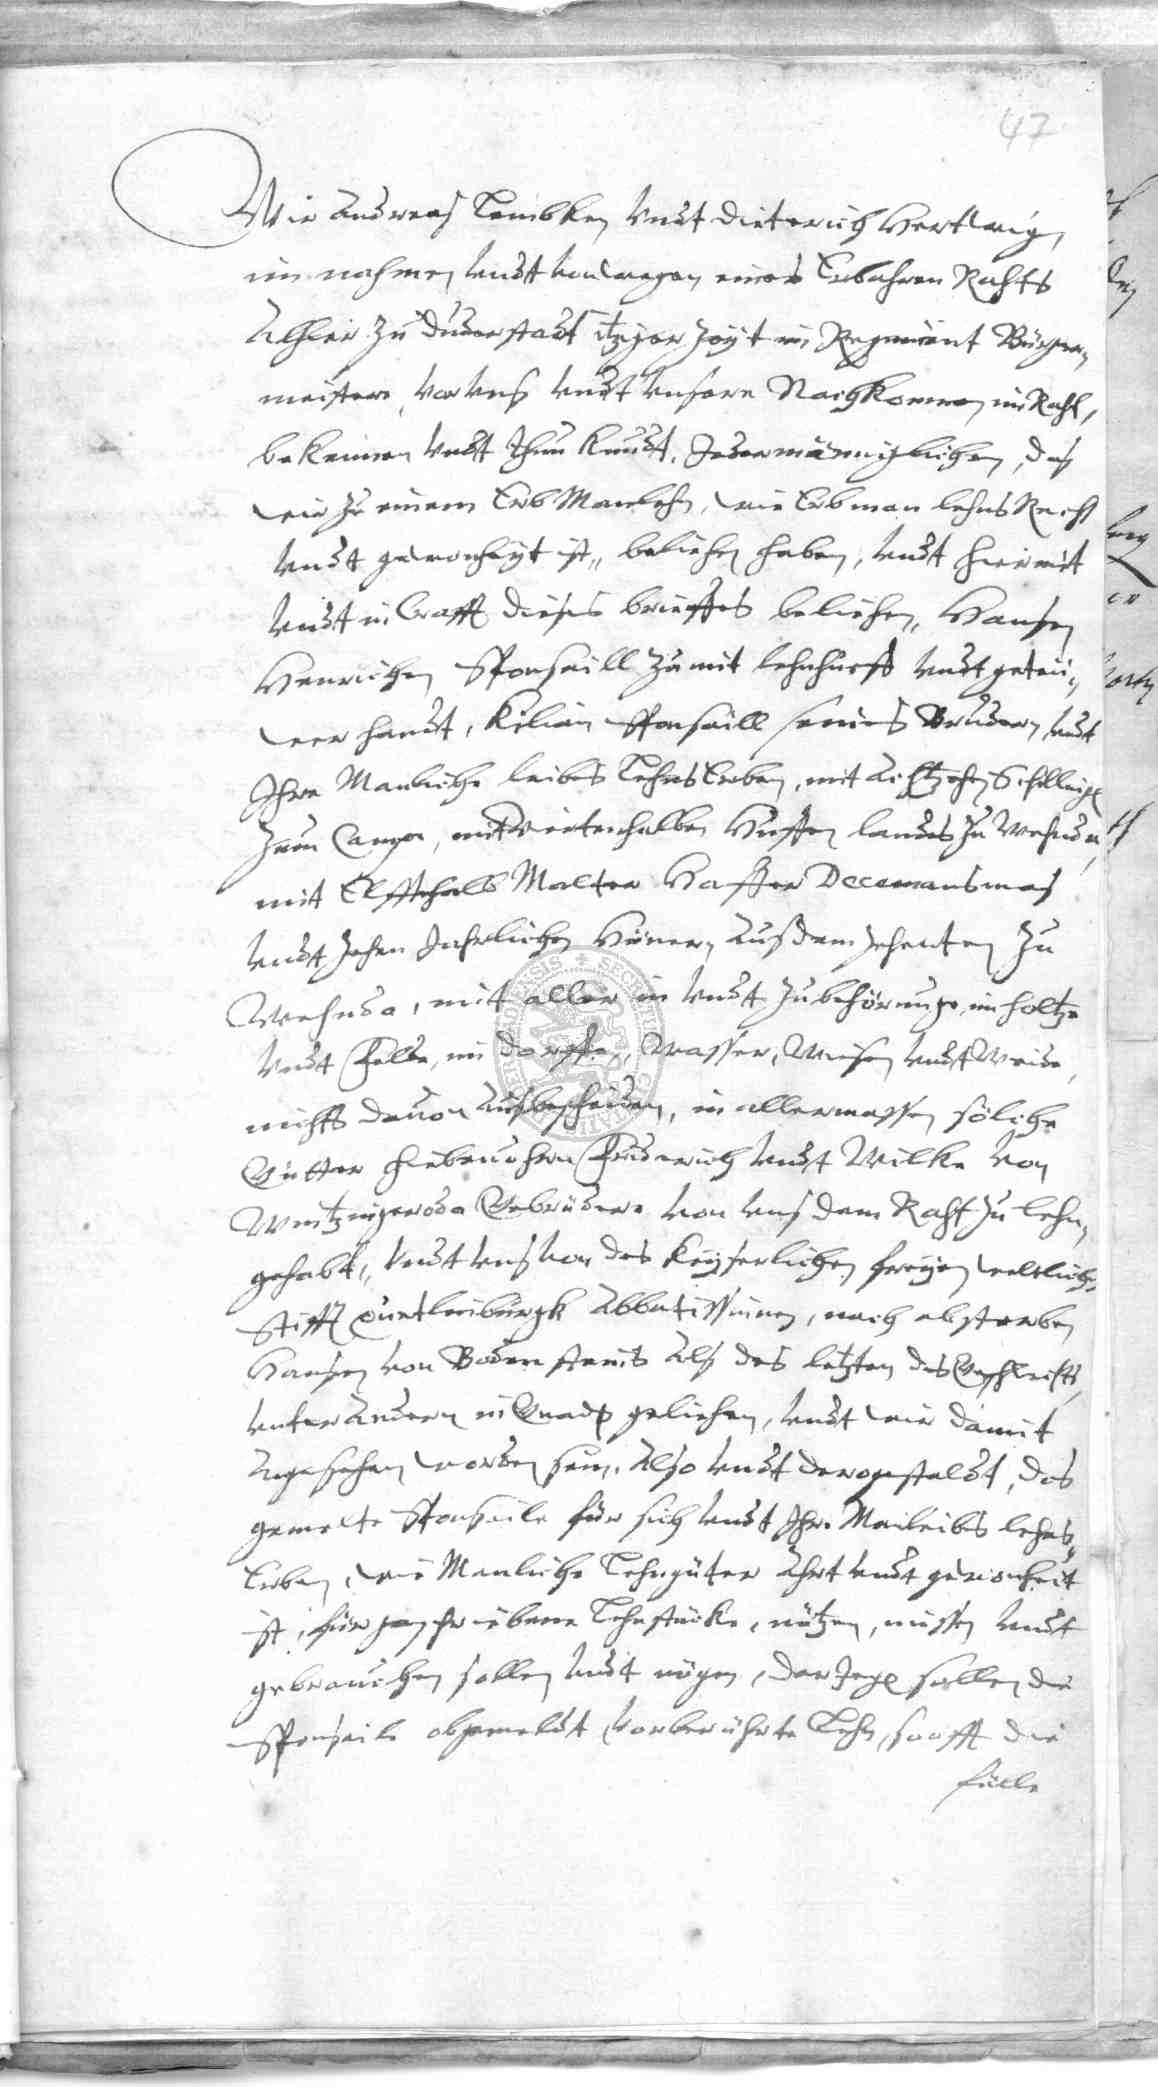 47
Wir Andreas Lembken vndt Dieterich Hertwig,
im nahmen vndt von wegen eines Erbahren Rahts
Alhier zu Duderstadt itziger Zeyt im Regiment Bürger-
meistere, vor vns vndt vnsere Nachkommen im Raht,
bekennen vndt thun kundt. Jedermänniglichen, das
wir zu einem Erb Manlehn, wie Erbman lehns Recht
vndt gewonheyt ist, beliehen haben, vndt hiermit
vndt in Crafft dieses brieffes beliehen, Hansen
Henrichen Sponsaill zu mit lehnschafft vndt getru-
wer handt, Kilian Sponsaill seines Brudern, vndt
Ihre Manliche leibes Lehns Erben, mit Achtzehen Schillinge
zum Campe, mit viertenhalben Huffen landes zu Wehnde,
mit Elfftehalb Malter Haffer Decemansmas
vndt Zehen Jahrlichen Hüner, Auß dem Zehenten zu
Wehnda, mit aller in vndt zubehörunge, im holtze
vndt Felde, im dorffe, Wasser, Wiesen vndt Weide,
nichts dauon Ausbescheiden, in allermassen sölche
Gütter hiebeuohrn Friderich vndt Wilke von
Wintzingeroda Gebrüdere von vns dem Raht zu lehn,
gehabt, vndt vns von des Keyserlichen freyen weltlichen
Stifft Quetlenburgk Abbatissinnen, nach absterben
Hansen von Bodensteins Als des letzten des Geschlechts,
vnter Andern in Gnade geliehen, vndt wir damit
Angesehen worden sein. Also vndt dergestaldt, das
gemelte Sponsaile für sich vndt Ihre Manleibes lehns-
Erben, wie Manliche Lehngüter Ahrt vndt gewonheit
ist, fürgeschriebene Lehnstücke, nützen, niessen vndt
gebrauchen sollen vndt mögen, Dar Jege sollen die
Sponsaile obgemeldt vorberührte Lehn, so offt die
fälle